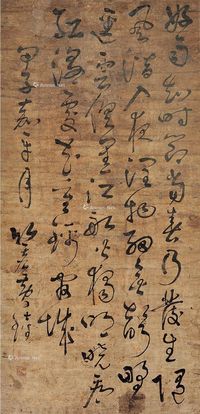 好雨知時節當春乃發生隨
風潛入夜潤物細無聲野
逕雲俱黑江船火獨明曉看
紅濕處花重錦官城
甲子嘉平月